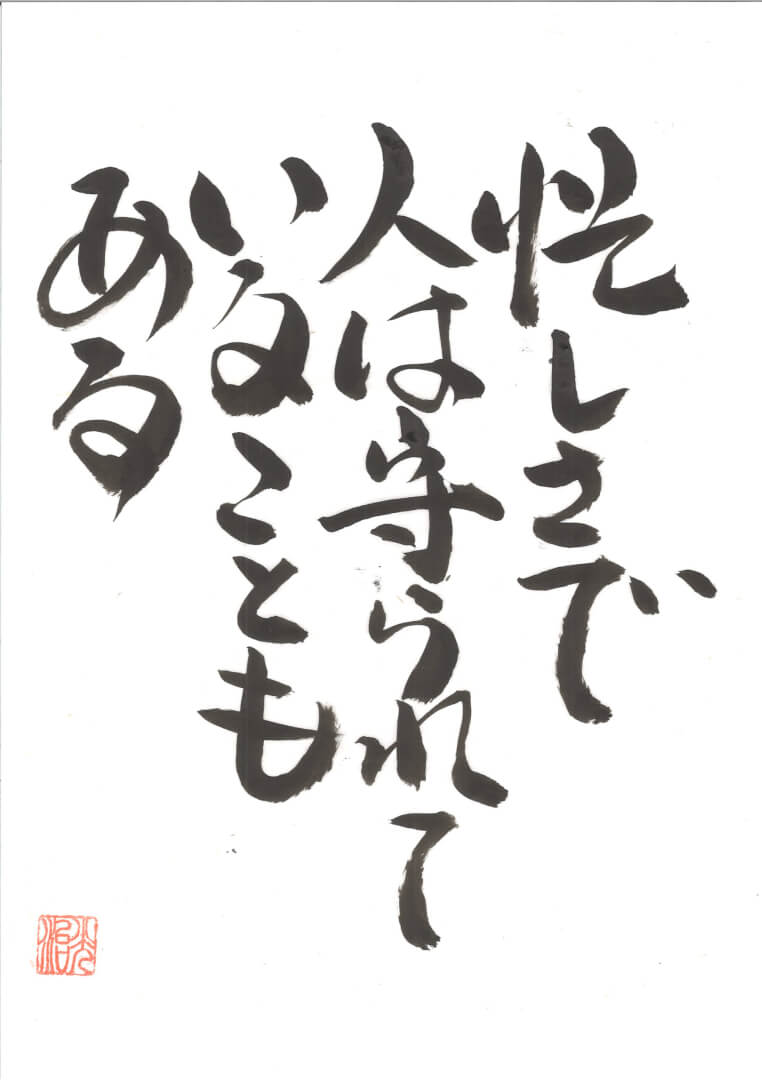 忙しさで
人は守られて
いることも
ある